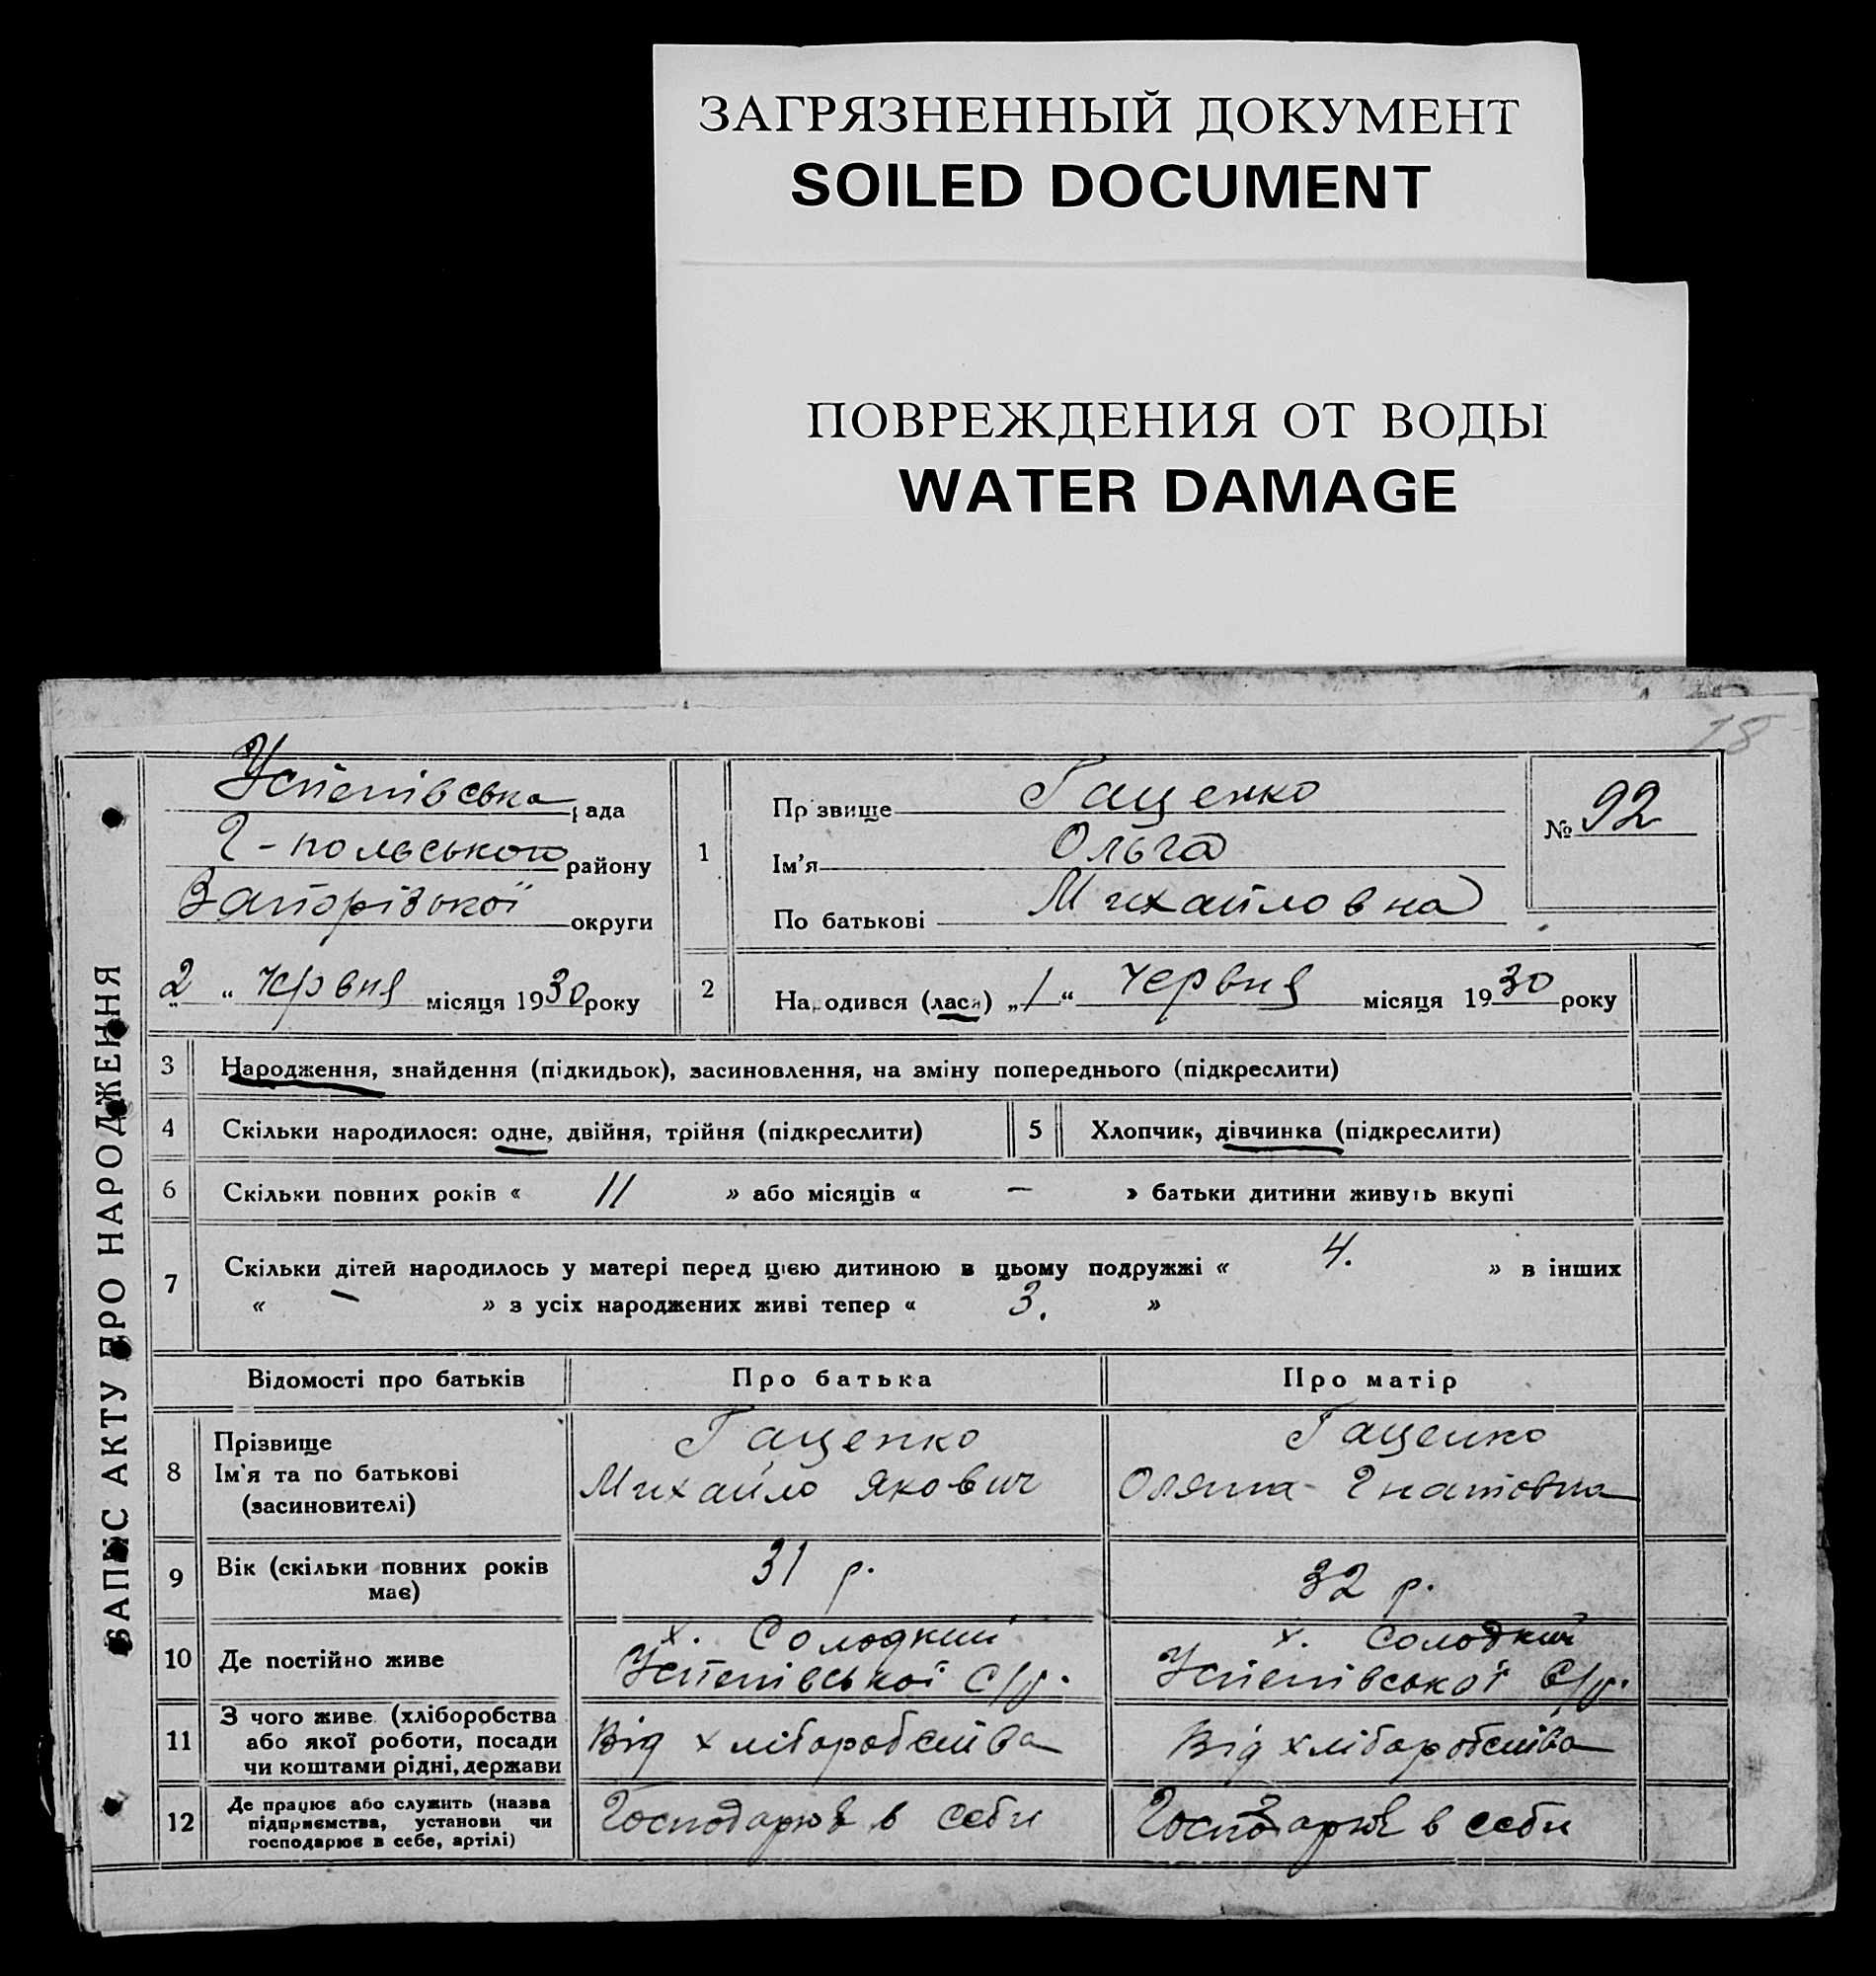 ЗАГРЯЗНЕННЫЙ ДОКУМЕНТ
SOILED DOCUMENT
ПОВРЕЖДЕНИЯ ОТ ВОДЫ
WATER DAMAGE
18
ЗАПИС АКТУ ПРО НАРОДЖЕННЯ
Успенівська рада
Г-польського району
Запорізької округи
„2“ червня місяця 1930 року
1
Прізвище Гащенко
Ім'я Ольга
По батькові Михайловна
№ 92
2
Народився (лася) „1“ червня місяця 1930 року
3 Народження, знайдення (підкидьок), засиновлення, на зміну попереднього (підкреслити)
4 Скільки народилося: одне, двійня, трійня (підкреслити)
5 Хлопчик, дівчинка (підкреслити)
6 Скільки повних років « 11 » або місяців « – » батьки дитини живуть вкупі
7 Скільки дітей народилось у матері перед цією дитиною в цьому подружжі « 4. » в інших
« – » з усіх народжених живі тепер « 3. »
Відомості про батьків Про батька Про матір
8 Прізвище
Ім'я та по батькові
(засиновителі)
Гащенко
Михайло Якович
Гащенко
Гнатовна
9 Вік (скільки повних років
має)
31 р.
32 р.
10 Де постійно живе
х. Солодкий
Успенівської С/р.
х. Солодкий
Успенівської С/р.
11 З чого живе (хліборобства
або якої роботи, посади
чи коштами рідні, держави
Від хліборобства
Від хліборобства
12 Де працює або служить (назва
підприємства, установи чи
господарює в себе, артілі)
Господарює в себи
Господарює в себи